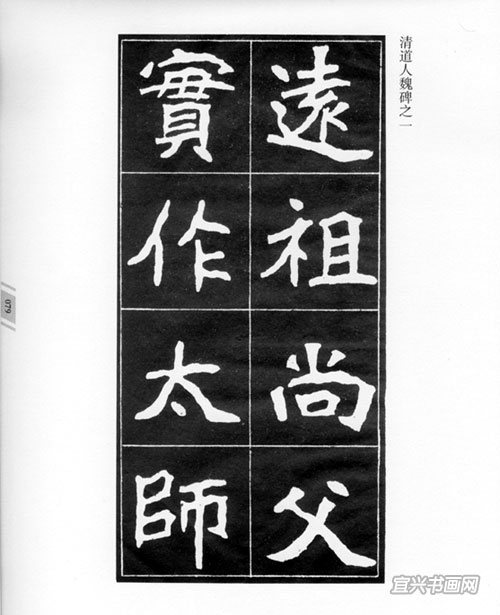 清道人魏碑之一
遠祖尚父
實作太師
079
宜兴书画网